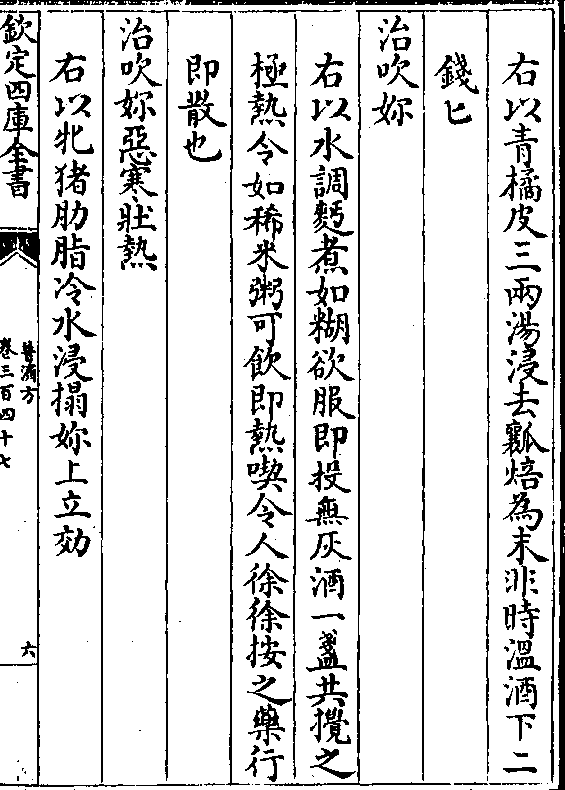 右以青橘皮三兩湯浸去瓤焙為末非時温酒下二
錢匕
治吹妳
右以水調麪煮如糊欲服即投無灰酒一盞共攪之
極熱令如稀米粥可飲即熱喫令人徐徐按之藥行
即散也
治吹妳惡寒壯熱
右以牝猪肋脂冷水浸搨妳上立効
欽定四庫全書
普濟方
卷三百四十七
六